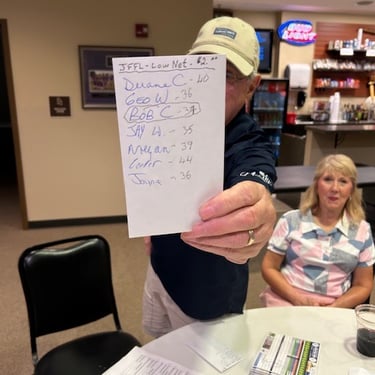 JFFL - Low Net.
Duane C - 40
GEO W - 36
BOB C - 37
JAY W - 35
- 39
Carter - 44
Jayne - 36
BUD
LIGHT